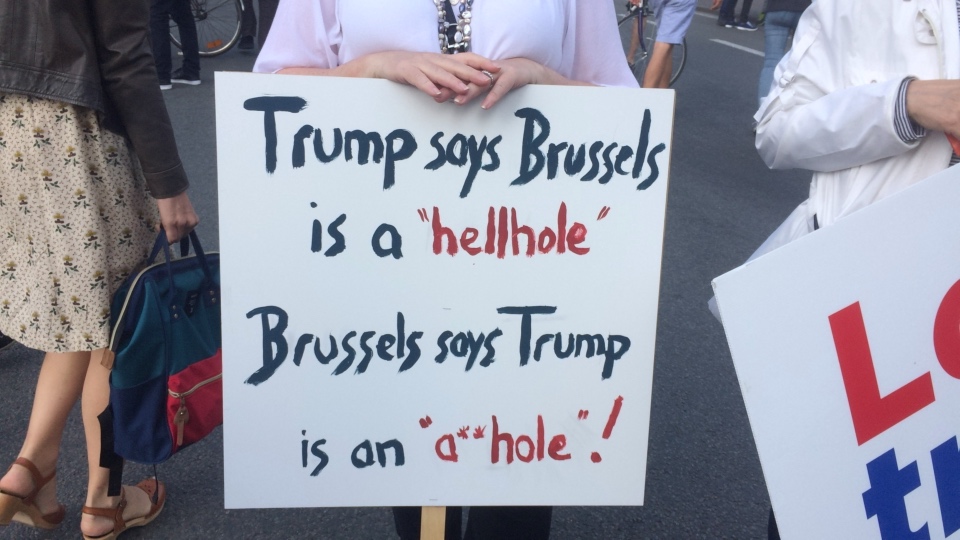 Trump says Brussels
is a "hellhole"
Brussels says Trump
is an "a**hole"!